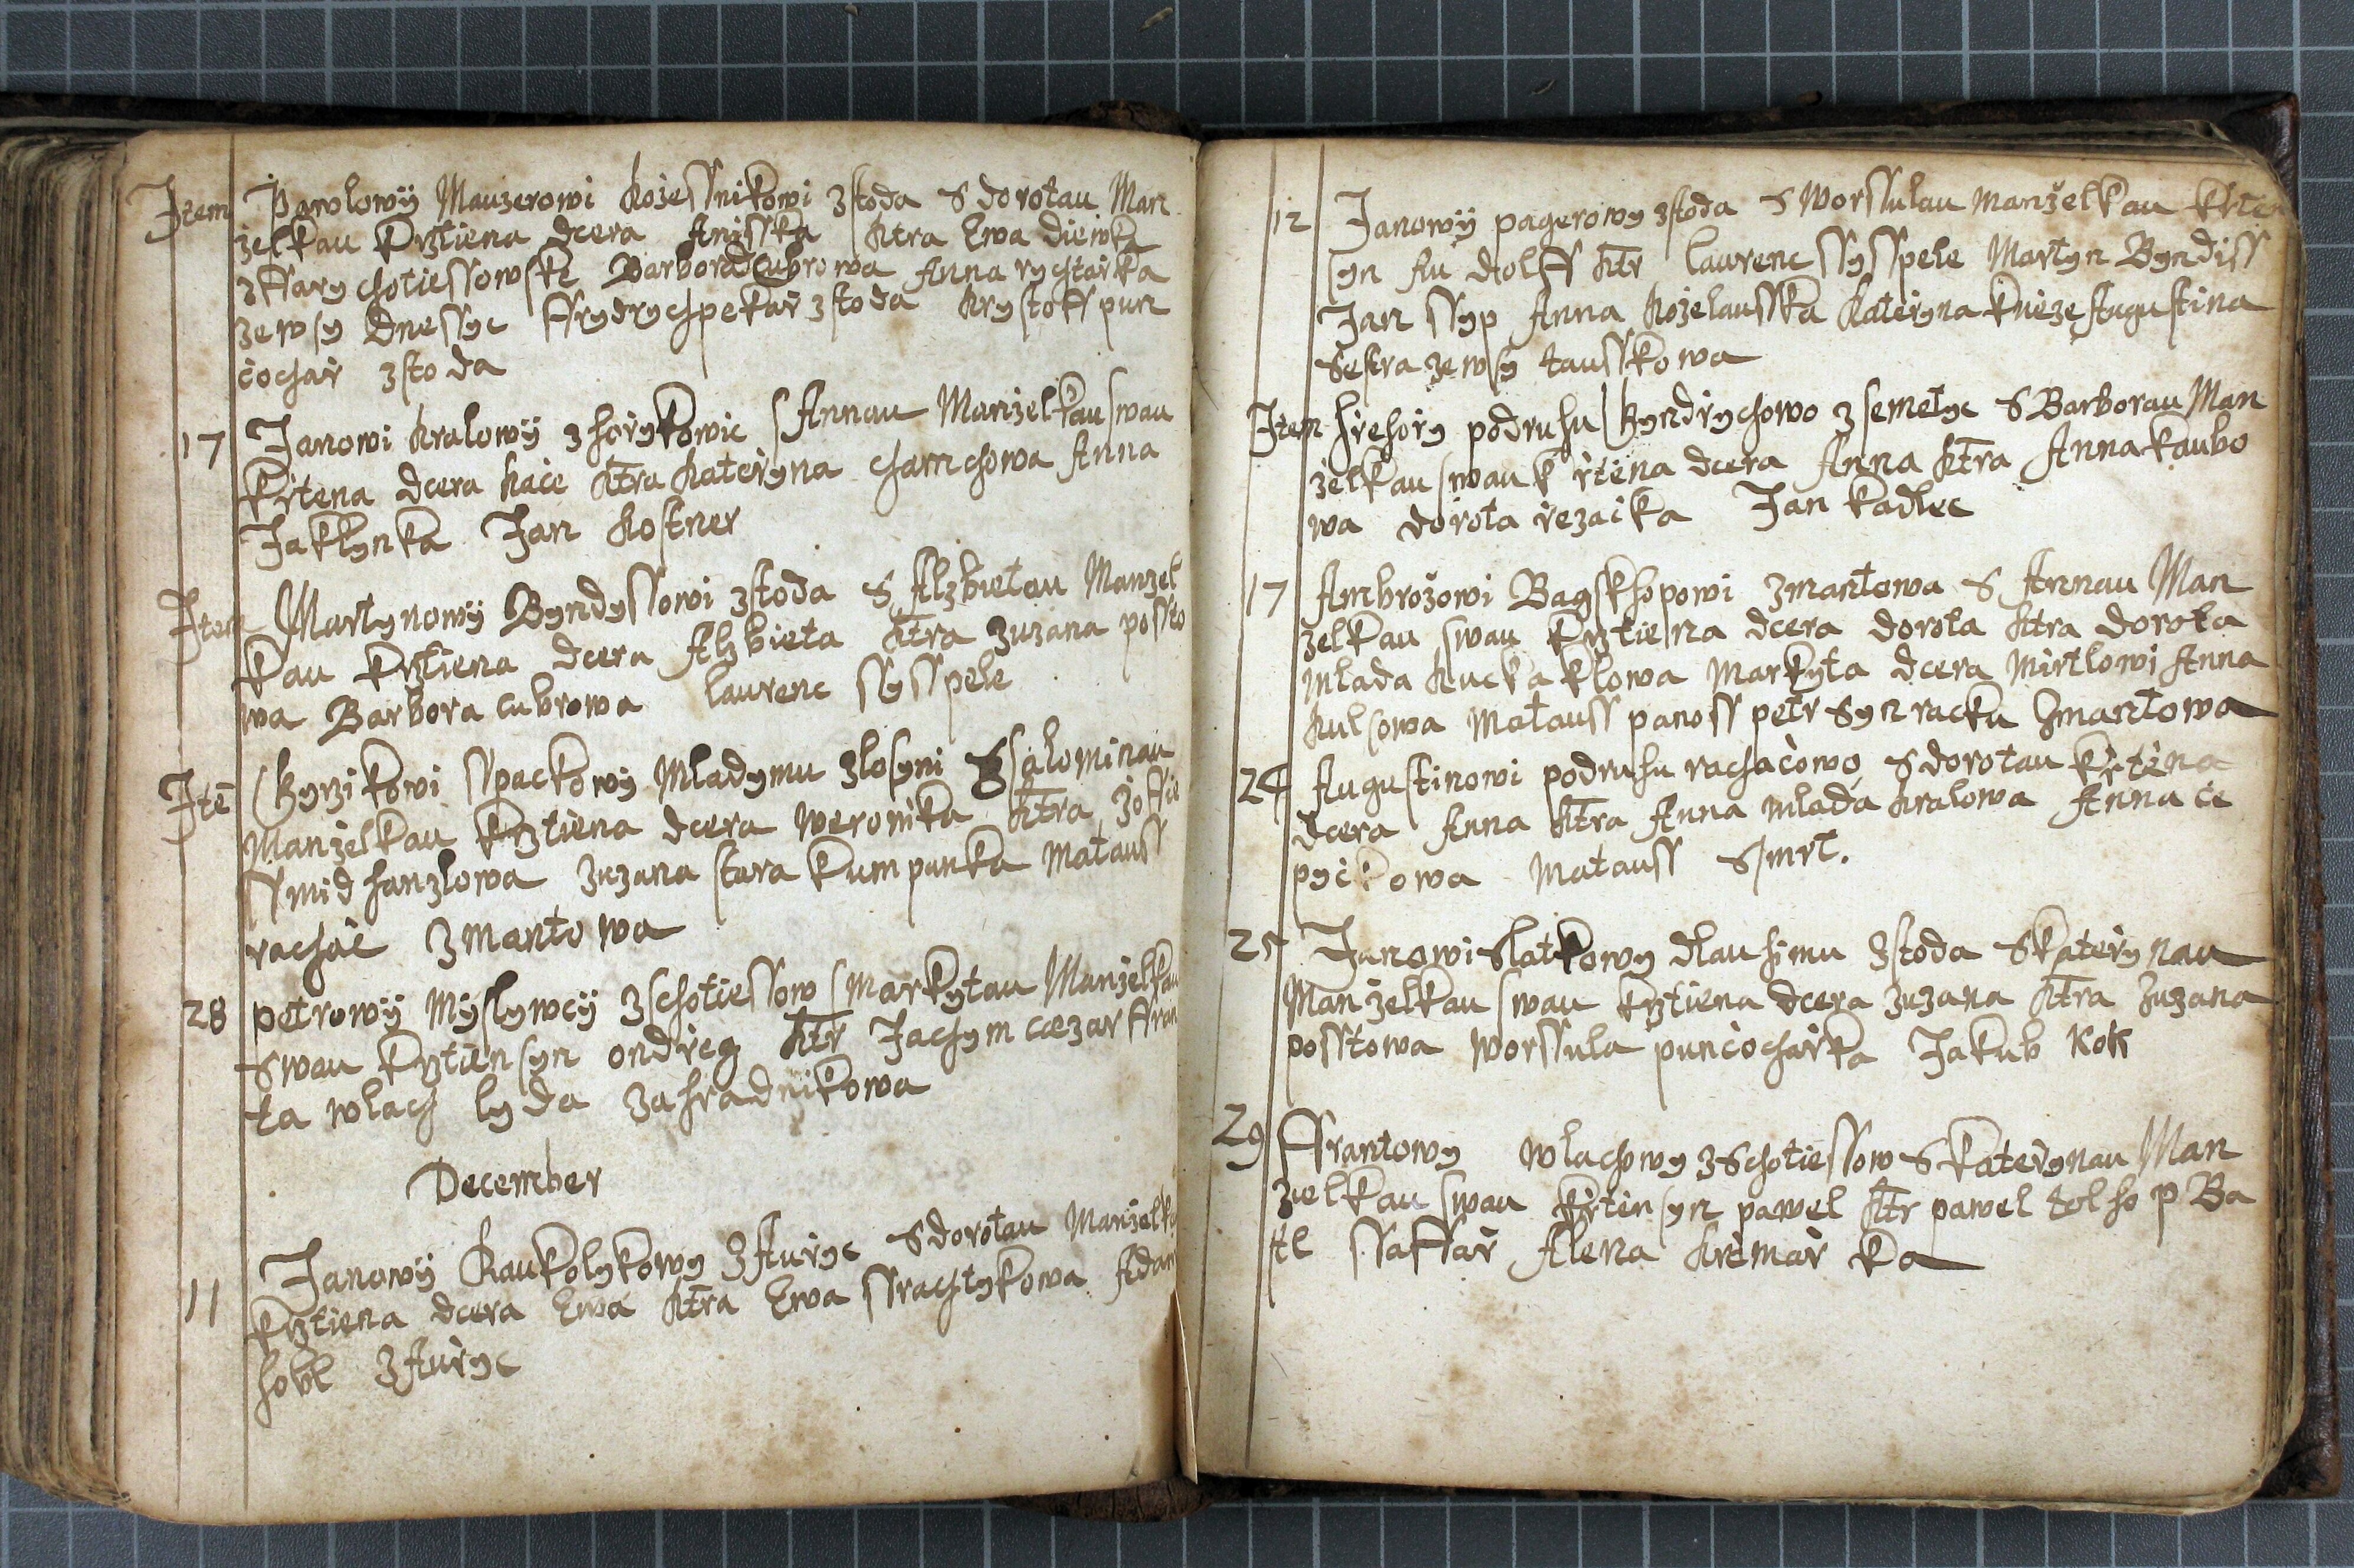 Item Pawlowÿ Mauzerowi kožessnikowi zstoda S dorotau Man
želkau Krztiena dcera Anisska ktra Ewa diewka
zffary chotiessowske Barbora Cubrowa Anna rychtařka
ze wsy Dnessyc ffrydrych pekař zstoda krystoff pun
čochař zstoda
17 Janowi kralowÿ z hořykowic s Annau Manželkau swau
křtena dcera kače ktra kateřyna charchowa Anna
Jaklynka Jan kostner
Item Martynowÿ Byndyssowi zstoda S Alzbietau Manžel
kau krztiena dcera Alzbieta ktra zuzana possto
wa Barbora cubrowa laurenc ssysspele
Itē hyrzikowi sspackowy Mladymu zlosyni S salominau
Manželkau krztiena dcera weronika ktra zoffie
ssmid hanzlowa zuzana stara kumpanka Matauss
rachač zmantowa
28 petrowÿ Myslywcÿ zschotiessow s markytau Manželkau
swau krztien syn ondřeg ktr Jachym cæzar ffran
ta wlach lyda zahradnikowa
December
11 Janowÿ kaukolykowy zAuřyc S dorotau Manželka
krztiena dcera Ewa ktra Ewa ssrachtykowa Adam
hobl zAuřyc
12 Janowÿ pagerowy zstoda S worssulau manželkau křten
syn Au dolff ktr laurenc ssysspele Martyn Byndiss
Jan ssyp Anna koželausska kateřyna knieze Augustina
Sestra ze wsy tausskowa
Item hřehořy podruhu hyndrychowo z semetyc S Barborau Man
želkau swau křtěna dcera Anna ktra Anna kaubo
wa dorota řezačka Jan kadlec
17 Ambrožowi Bagskhopowi zmantowa S Annau Man
zelkau swau krztiena dcera dorota ktra dorota
mlada kuckaklowa Markyta dcera mirtlowi Anna
kulsowa Matauss panoss petr Syn racku Zmantowa
24 Augustinowi podruhu rachačowo S dorotau křtěna
dcera Anna ktra Anna mlada kralowa Anna če
pyčkowa Matauss Smrt.
25 Janowi Slatkowy dlauhimu zstoda S kateřynau
Manželkau swau krztiena dcera zuzana ktra zuzana
posstowa worssula punčochařka Jakub Kok
29 ffrantowy wlachowy z Schotiessow S kateřynau Man
zielkau swau křtěn syn pawel ktr pawel tolho p Ba
ssaffař Alena krčmař ka